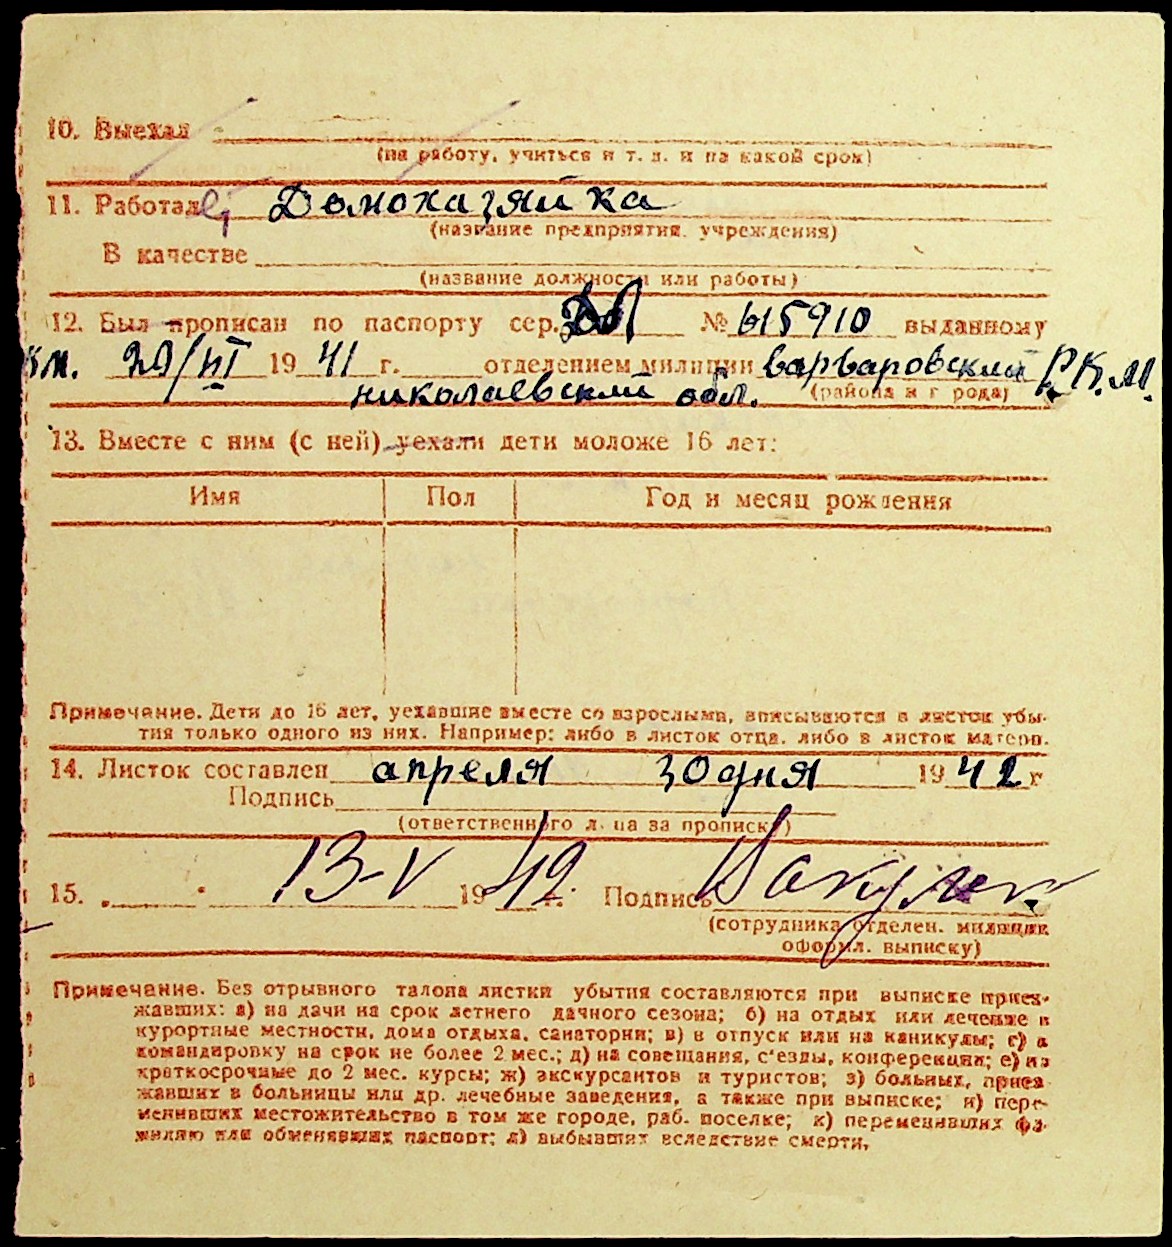 10. Выехал
(на работу, учиться и т. д. и на какой срок)
11. Работал Домохазяйка
(название предприятия, учреждения)
В качестве
(название должности или работы)
12. Был прописан по паспорту сер. № 615910 выданному
19 41 г. отделением милиции варваровский Р.К.М.
николаевский обл. (района и города)
13. Вместе с ним (с ней) уехали дети моложе 16 лет:
Имя Пол Год и месяц рождения
Примечание. Дети до 16 лет, уехавшие вместе со взрослыми, вписываются в листок убы-
тия только одного из них. Например: либо в листок отца, либо в листок матери.
14. Листок составлен апреля 30 дня 1942 г
Подпись
(ответственного лица за прописку)
15. 13-V 1942 г. Подпись
(сотрудника отделен. милиции
оформл. выписку)
Примечание. Без отрывного талона листки убытия составляются при выписке приез-
жавших: а) на дачи на срок летнего дачного сезона; б) на отдых или лечение в
курортные местности, дома отдыха, санатории; в) в отпуск или на каникулы; г) в
командировку на срок не более 2 мес.; д) на совещания, с'езды, конференции; е) на
краткосрочные до 2 мес. курсы; ж) экскурсантов и туристов; з) больных, приез-
жавших в больницы или др. лечебные заведения, а также при выписке; и) пере-
менивших местожительство в том же городе, раб. поселке; к) переменивших фа-
милию или обменявших паспорт; л) выбывших вследствие смерти.